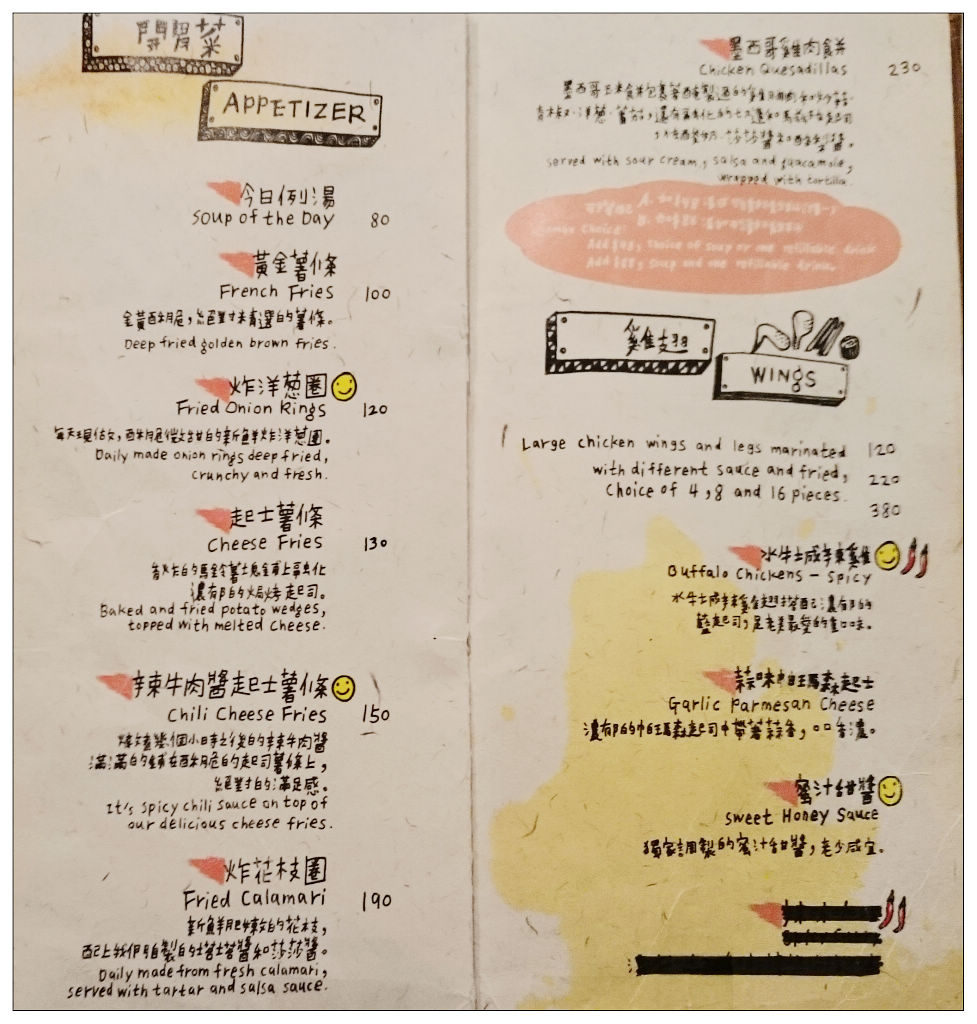 開胃菜
APPETIZER
今日例湯
Soup of the Day 80
黃金薯條
French Fries 100
金黃酥脆，絕對精選的薯條。
Deep fried golden brown fries.
炸洋葱圈
Fried Onion Rings 120
每天現做，酥脆微甜的新鮮炸洋葱圈。
Daily made onion rings deep fried,
crunchy and fresh.
起士薯條
Cheese Fries 130
香炸的馬鈴薯塊鋪上融化
濃郁的焗烤起司。
Baked and fried potato wedges,
topped with melted cheese.
辣牛肉醬起士薯條
Chili Cheese Fries 150
幾個小時之後的辣牛肉醬
滿滿的鋪在酥脆的起司薯條上，
絕對的滿足感。
It's spicy chili sauce on top of
our delicious cheese fries.
炸花枝圈
Fried Calamari 190
新鮮肥嫩的花枝，
配上我們自製的塔塔醬和莎莎醬。
Daily made from fresh calamari,
served with tartar and salsa sauce.
墨西哥雞肉餅
Chicken Quesadillas 230
墨西哥玉米餅包裹著醃製過的雞胸肉和炒菇
青椒、洋葱、蕃茄，還有融化的切達和馬茲瑞拉起司
served with sour cream, salsa and guacamole,
wrapped with tortilla.
Combo Choice:
Add $48, choice of soup or one refillable drink
Add $88, soup and one refillable drink.
雞翅
WINGS
Large chicken wings and legs marinated 120
with different sauce and fried, 220
Choice of 4, 8 and 16 pieces. 380
水牛城辣雞
Buffalo Chickens - Spicy
水牛城辣雞翅搭配濃郁的
藍起司，是老美最愛的重口味。
蒜味帕瑪森起士
Garlic Parmesan Cheese
濃郁的帕瑪森起司中帶著蒜香，口口香濃。
蜜汁甜醬
Sweet Honey Sauce
獨家調製的蜜汁甜醬，老少咸宜。